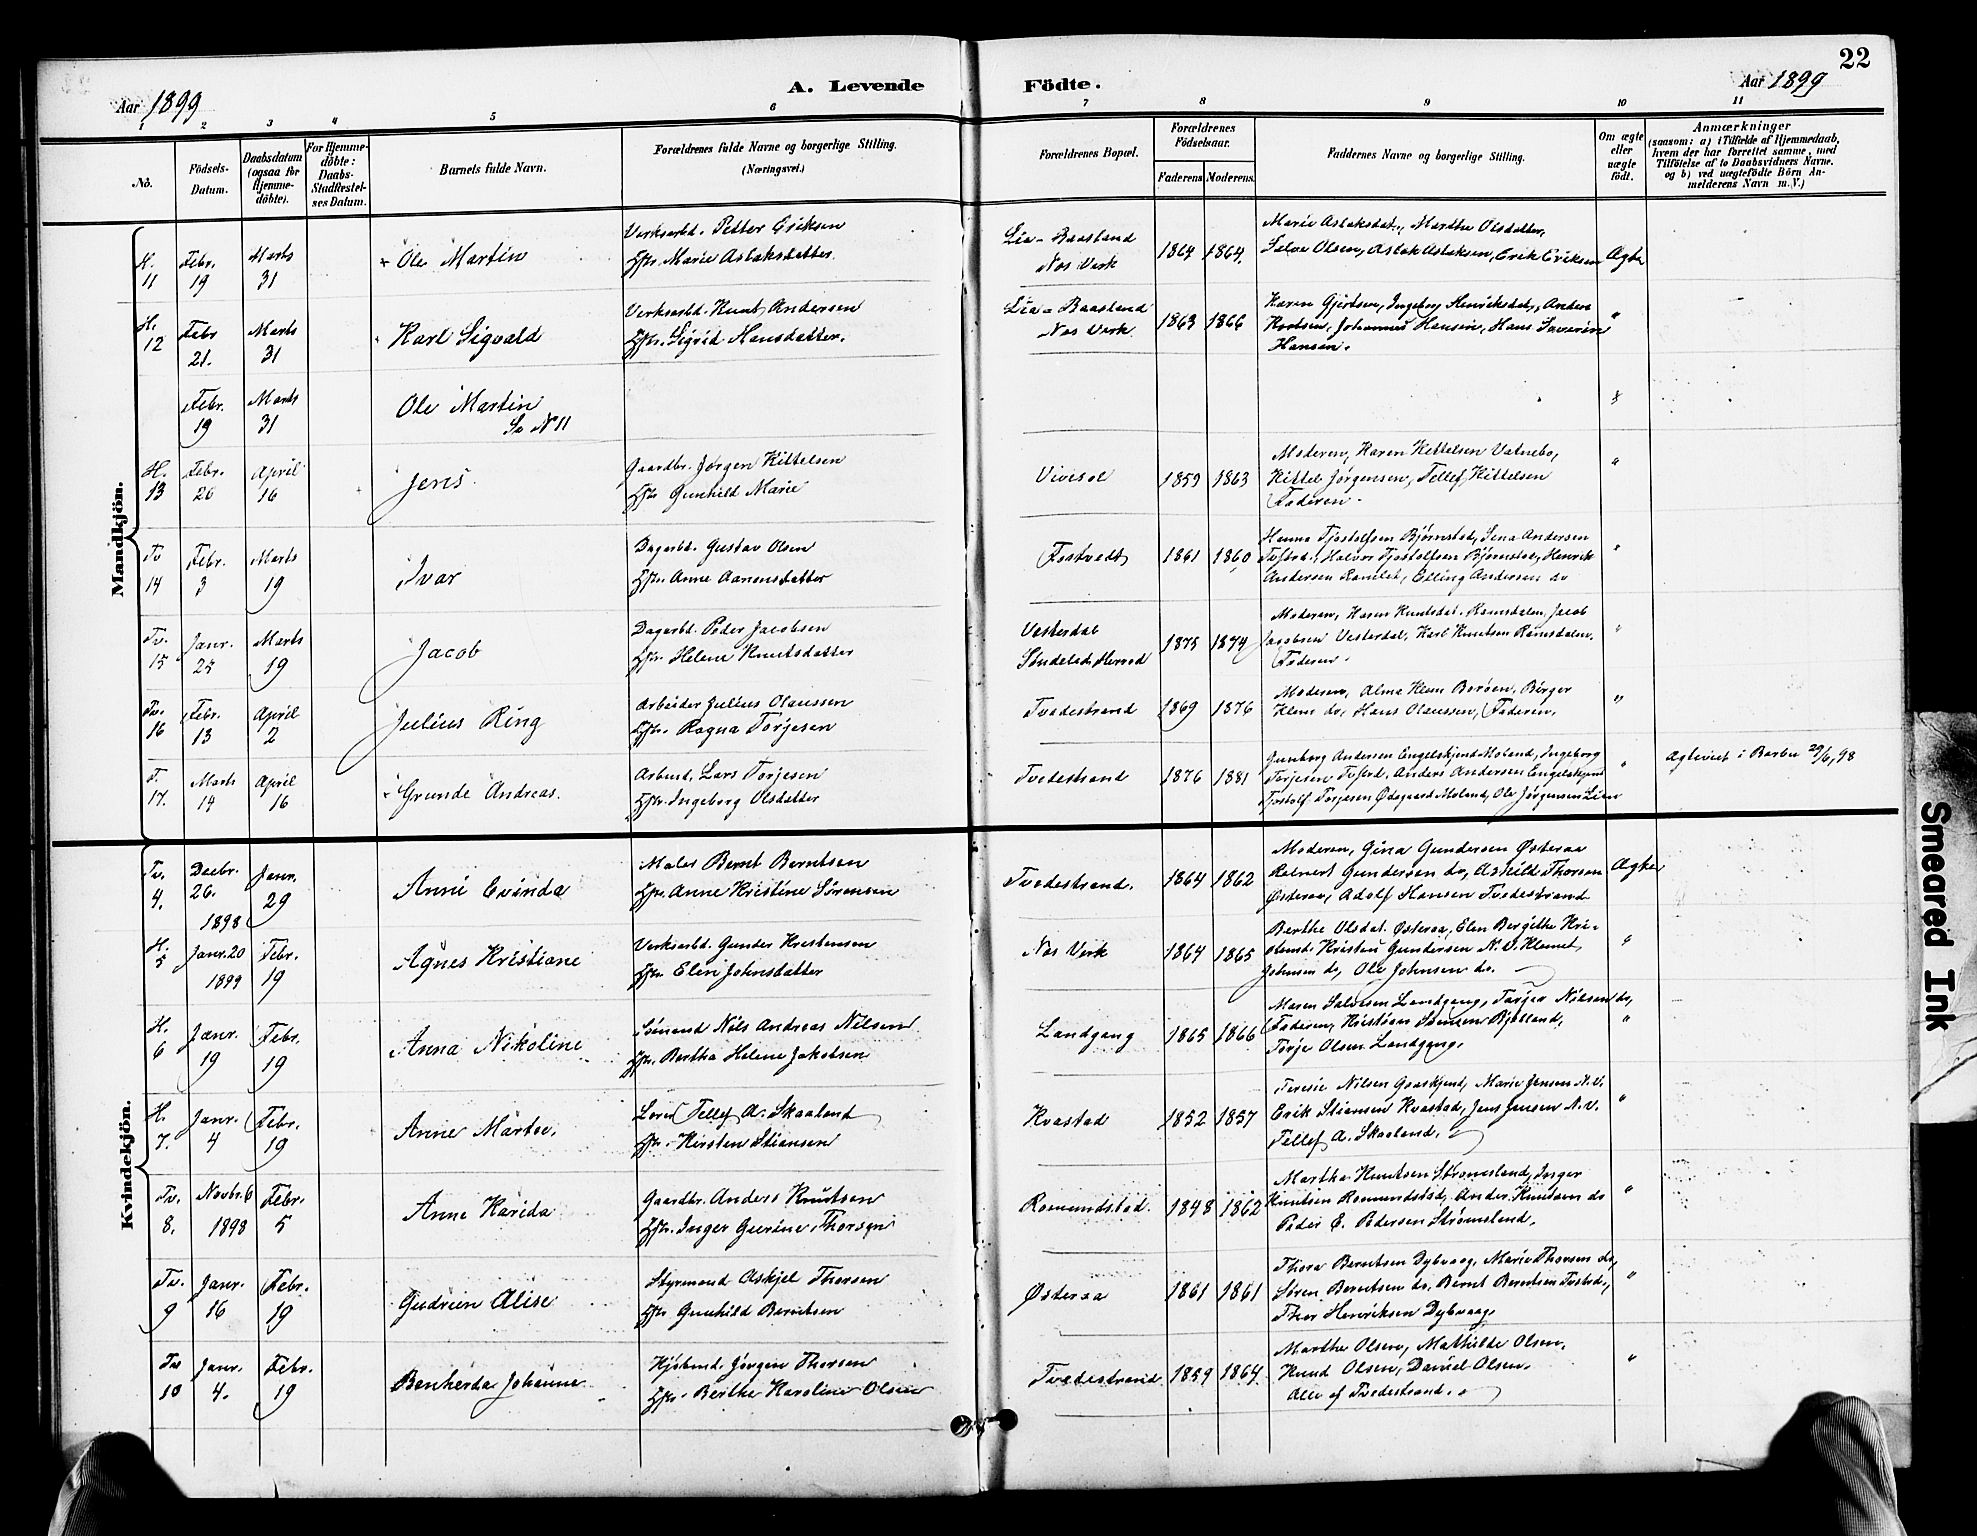 22
Aar 1899
A. Levende Födte.
Aar 1899
1 2 3 4 5 6 7 8 9 10 11
No.
Födsels-Datum.
Daabsdatum (ogsaa for Hjemme-döbte).
For Hjemme-döbte: Daabs-Stadfæstel-ses Datum.
Barnets fulde Navn.
Forældrenes fulde Navne og borgerlige Stilling. (Næringsvei.)
Forældrenes Bopæl.
Forældrenes Födselsaar.
Faderens Moderens
Faddernes Navne og borgerlige Stilling.
Om ægte eller uægte födt.
Anmærkninger
(saasom: a) i Tilfælde af Hjemmedaab, hvem der har forrettet samme, med Tilföielse af to Daabsvidners Navne. og b) ved uægtefödte Börn Anmelderens Navn m. V.)
Mandkjön.
H. 11 Febr. 19 Marts 31 Ole Martin
Verksarbd. Petter Eriksen
Hstr. Marie Aslaksdatter
Lia - Baasland
Næs Verk
1864 1864
Marie Aslaksdat., Marthe Olsdatter,
Salve Olsen, Aslak Aslaksen, Erik Eriksen
Ægte
H. 12 Febr 21. Marts 31 Karl Sigvald
Verksarbd. Knut Andersen
Hstr. Sigrid Hansdatter.
Lia - Baasland
Næs Verk
1863 1866
Karen Gjertsen, Ingeborg Henriksdat., Anders
Knutsen, Johannes Hansen, Hans Severin
Hansen.
"
Febr. 19 Marts 31 Ole Martin
Se N 11
H. 13 Febr. 20 April 16 Jens
Gaardbr. Jørgen Kittelsen
Hstr Gunhild Marie
1859 1863
Moderen, Karen Kittelsen Vatnebo,
Kittel Jörgensen, Tellef Kittelsen
Faderen.
"
Tv 14 Febr. 3 Marts 19 Ivar
Dagarbd. Gustav Olsen
Hstr. Anne Aanonsdatter
Fostvedt
1861 1860
Hanna Tjostolfsen Bjørnstad, Sina Andersen
Tvstrd., Halvor Tjostolfsen Bjørnstad, Henrik
Andersen, Elling Andersen do
"
Tv. 15 Janr. Marts 19 Jacob
Dagarbd. Peder Jacobsen
Hstr Helene Knutsdatter
Vesterdal
Söndeleds Herred
1875 1874
Moderen, Karen Knutsdat. Ramsdalen, Jacob
Jacobsen Vesterdal, Karl Knutsen Ramsdalen.
Faderen.
"
Tv. 16 Febr. 13 April 2 Julius Ring
Arbeider Julius Olaussen
Hstr. Ragna Torjesen
Tvedestrand
1869 1876
Moderen, Alma Klem Borøen, Birger
Klem do, Hans Olaussen, Faderen.
"
T. 17. Marts 14 April 16 Grunde Andreas.
Arbmd. Lars Torjesen
Hstr. Ingeborg Olsdatter
Tvedestrand
1876 1881
Gunborg Andersen Engelskjend Moland, Ingeborg
Torjesen Tvstrd. Anders Andersen Engelskjend
Tjostolf Torjesen Ødegaard Moland, Ole Jörgensen Lien
"
Ægteviet i Barbu 29/6, 98
Kvindekjön.
Tv. 4. Decbr. 26. 1898 Janr. 29 Anne Evinda
Maler Bernt Berntsen
Hstr. Anne Kristine Sörensen
Tvedestrand.
1864 1862
Moderen, Gina Gundersen Østeraa
Reinert Gundersen do, Askild Thorsen
Østeraa, Adolf Hansen Tvedestrand
Ægte
H. 5 Janr. 20 1899 Febr. 19 Agnes Kristiane
Verksarbd. Gunder Kristensen
Hstr. Elen Johnsdatter
Næs Verk
1864 1865
Berthe Olsdat. Østeraa, Elen Bergithe Kri-
stensd. Kristen Gundersen N. V. Klemet
Johnsen do, Ole Johnsen do.
"
H. 6 Janr. 19 Febr. 19 Anna Nikoline
Sömand Nils Andreas Nilsen
Hstr. Bertha Helene Jakobsen
Landgang
1865 1866
Maren Salvesen Landgang, Torjer Nilsen do,
Faderen, Kristian Bjelland,
Torje Olsen Landgang.
"
H. 7. Janr. 4 Febr. 19 Anne Martea.
Tellef A. Skaaland
Hstr. Kirsten Stiansen
Kvastad
1852 1857
Teresie Nilsen, Marie Jensen N. V.
Erik Stiansen Kvastad, Jens Jensen N. V.
Tellef A. Skaaland.
"
Tv. 8. Novbr. 6 1898 Febr. 5 Anne Karida
Gaardbr. Anders Knutsen
Hstr. Inger Gurine Thorsen
Romundstad.
1848 1862
Martha Knutsen Strömsland, Inger
Knutsen Romundstad, Anders Knudsen do
Peder E. Pedersen Strömsland.
"
Tv. 9 Janr. 16 Febr. 19 Gudrun Alise
Styrmand Askjel Thorsen
Hstr Gunhild Berntsen
Østeraa
1861 1861
Thora Berntsen Dybvaag, Marie Thorsen do,
Sören Berntsen do, Bernt Berntsen Tvstrd.,
Thor Henriksen Dybvaag.
"
Tv 10 Janr. 4. Febr. 19 Benherda Johanne
Kjöbmd. Jörgen Thorsen
Hstr. Berthe Karoline Olsen
Tvedestrand
1859 1864
Marthe Olsen, Mathilde Olsen,
Knud Olsen, Daniel Olsen.
Alle af Tvedestrand.
"
Smeared Ink